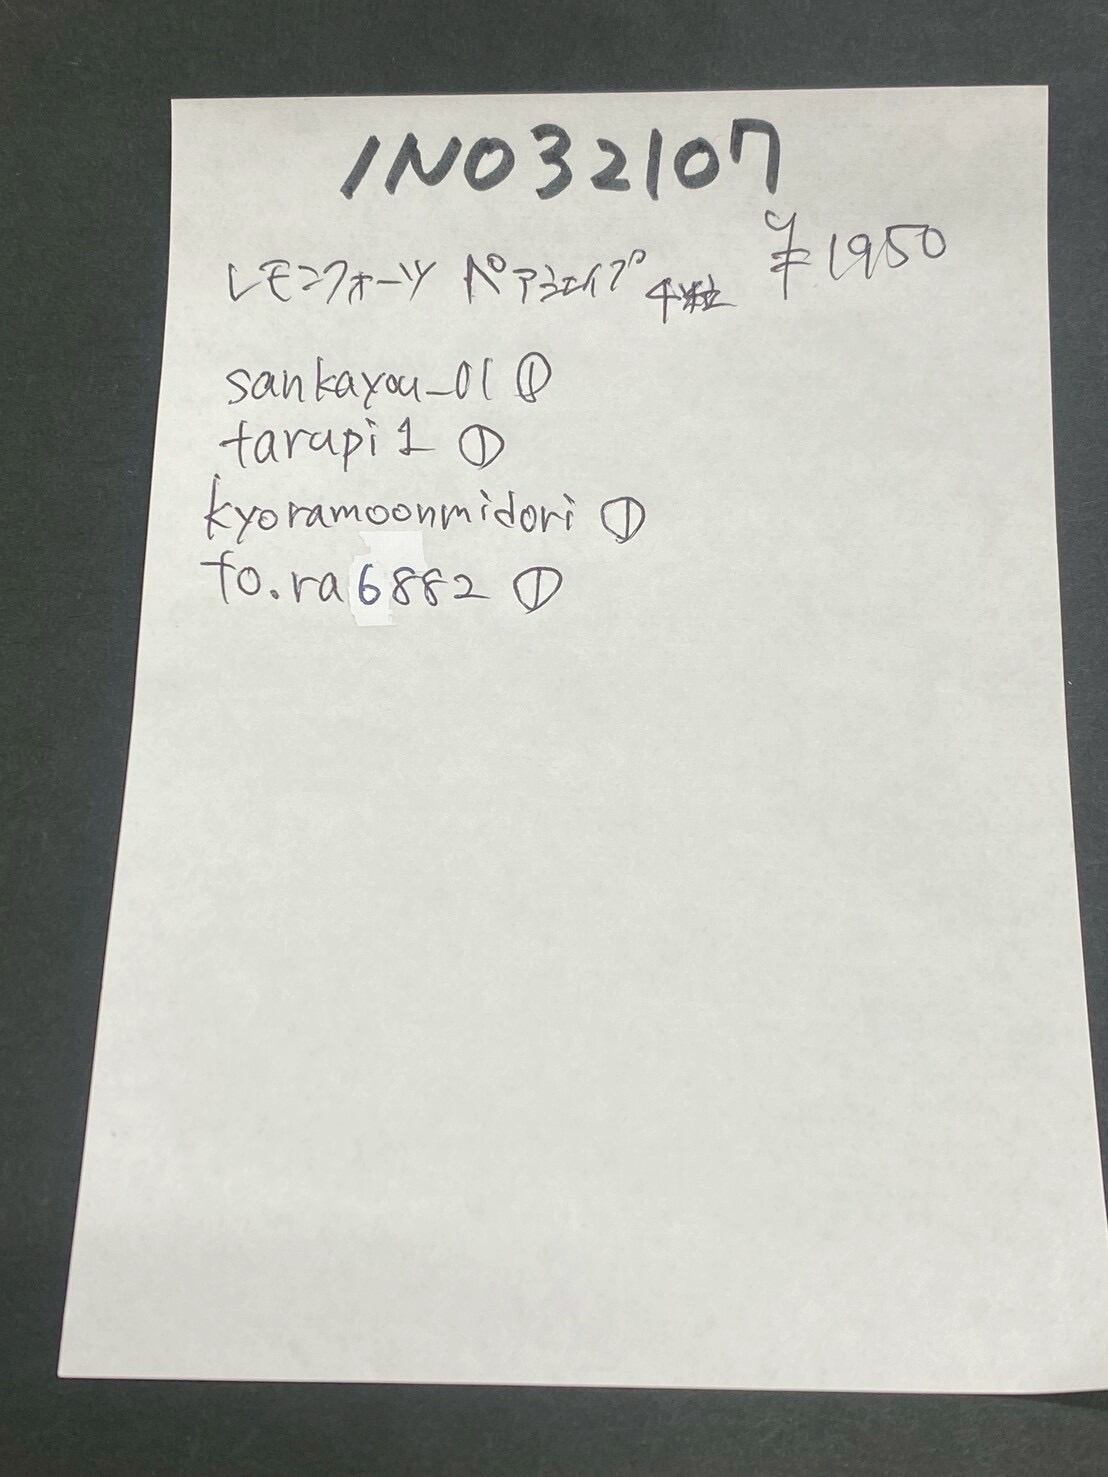 INO32107
レモンクォーツ ペアシェイプ 4粒 ¥1950
sankayou_01 ①
tarupi1 ①
kyoramoonmidori ①
to.ra6882 ①